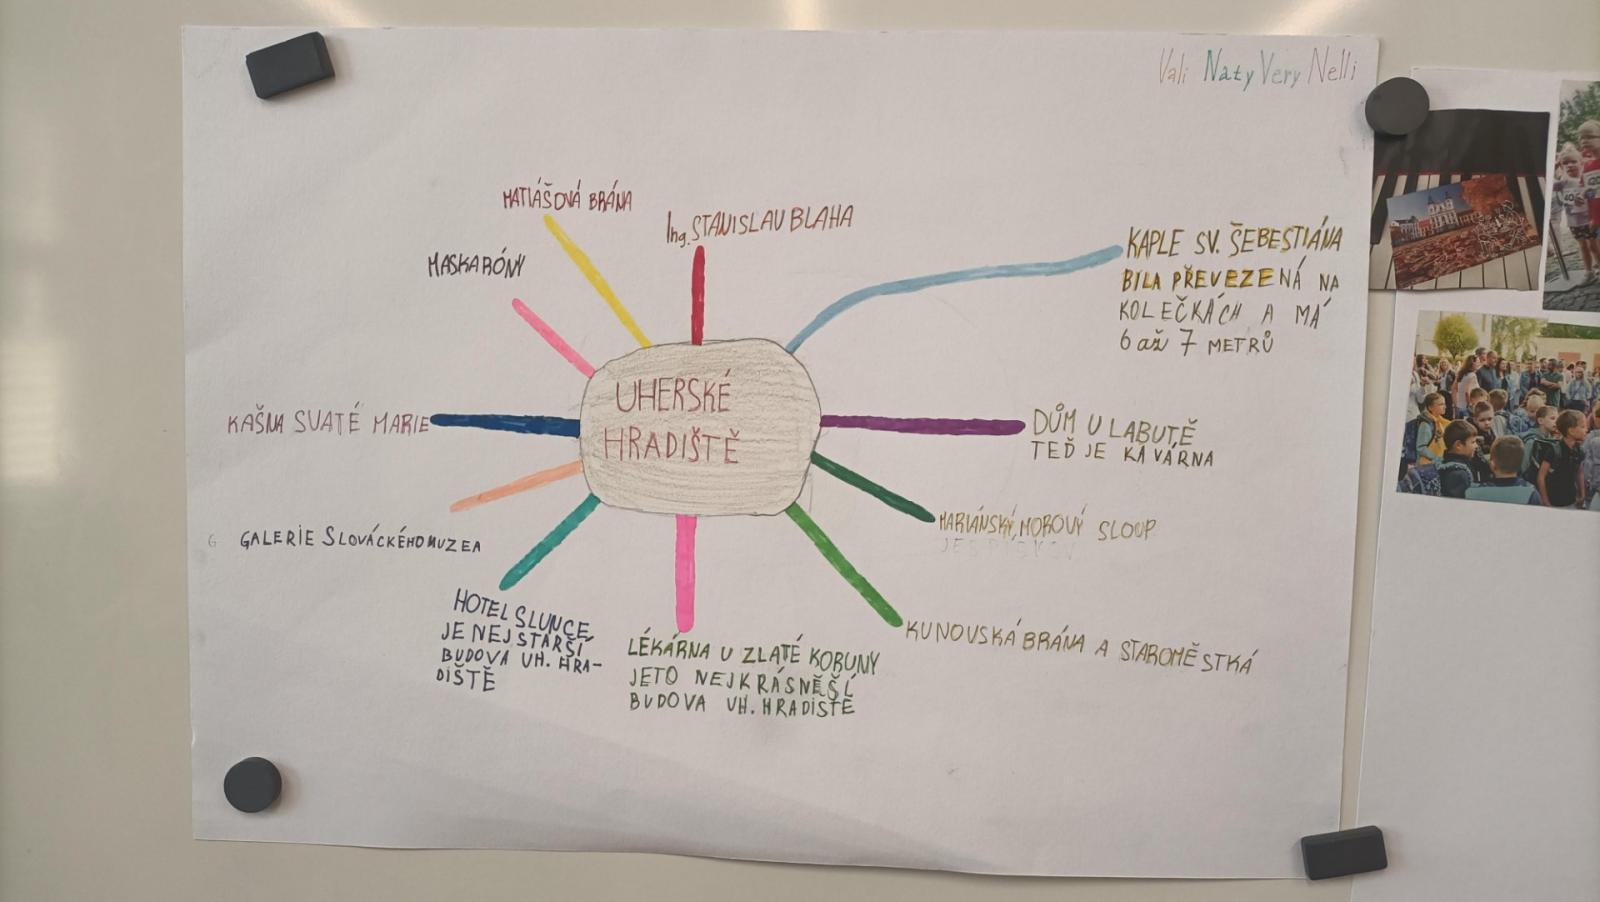 Vali Naty Very Nelli
MATIÁŠOVÁ BRÁNA
Ing. STANISLAV BLAHA
MASKARÓNY
KAPLE SV. ŠEBESTIÁNA
BILA PŘEVEZENÁ NA
KOLEČKÁCH A MÁ
6 až 7 METRŮ
UHERSKÉ
HRADIŠTĚ
KAŠNA SVATÉ MARIE
DŮM U LABUTĚ
TEĎ JE KAVÁRNA
MARIÁNSKÝ, MOROVÝ SLOUP
G GALERIE SLOVÁCKÉHO MUZEA
HOTEL SLUNCE
JE NEJSTARŠÍ
BUDOVA UH. HRA-
DIŠTĚ
LÉKÁRNA U ZLATÉ KORUNY
JETO NEJKRÁSNĚŠÍ
BUDOVA UH. HRADIŠTĚ
KUNOVSKÁ BRÁNA A STAROMĚSTKÁ